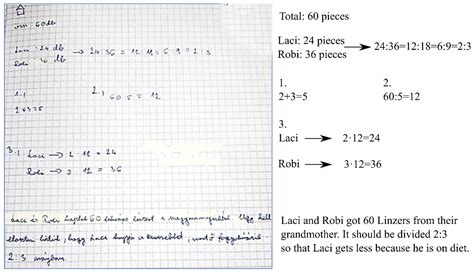 60 db
Laci: 24 db
Robi: 36 db
24:36 = 12:18 = 6:9 = 2:3
1.)
2+3=5
2.)
60:5 = 12
3.) Laci → 2·12=24
Robi → 3·12 = 36
Laci és Robi kaptak 60 linzert a nagymamájuktól. Úgy kell
hogy Laci kapja a kevesebbet, mert fogyókúrázik.
2:3 arányban.
Total: 60 pieces
Laci: 24 pieces
Robi: 36 pieces
24:36=12:18=6:9=2:3
1.
2+3=5
2.
60:5=12
3.
Laci → 2·12=24
Robi → 3·12=36
Laci and Robi got 60 Linzers from their
grandmother. It should be divided 2:3
so that Laci gets less because he is on diet.